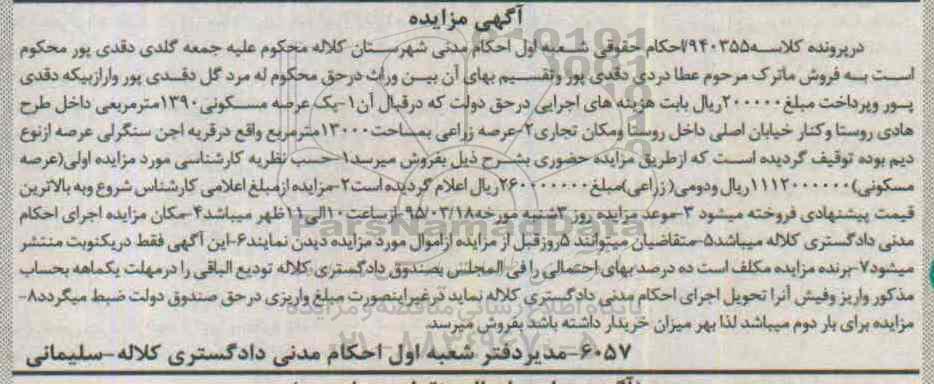 آگهی مزایده
درپرونده کلاسه۹۴۰۳۵۵/۱احکام حقوقی شعبه اول احکام مدنی شهرستان کلاله محکوم علیه جمعه گلدی دقدی پور محکوم
است به فروش ماترک مرحوم عطا دردی دقدی پور وتقسیم بهای آن بین وراث درحق محکوم له مرد گل دقدی پور وارازبیکه دقدی
پور وپرداخت مبلغ۲۰۰۰۰۰ریال بابت هزینه های اجرایی درحق دولت که درقبال آن۱-یک عرصه مسکونی۱۳۹۰مترمربعی داخل طرح
هادی روستا وکنار خیابان اصلی داخل روستا ومکان تجاری۲-عرصه زراعی بمساحت۱۳۰۰۰مترمربع واقع درقریه اجن سنگرلی عرصه ازنوع
دیم بوده توقیف گردیده است که ازطریق مزایده حضوری بشرح ذیل بفروش میرسد۱-حسب نظریه کارشناسی مورد مزایده اولی(عرصه
مسکونی)۱۱۱۲۰۰۰۰۰۰ریال ودومی(زراعی)مبلغ۲۶۰۰۰۰۰۰۰ریال اعلام گردیده است۲-مزایده ازمبلغ اعلامی کارشناس شروع وبه بالاترین
قیمت پیشنهادی فروخته میشود ۳-موعد مزایده روز ۳شنبه مورخه۹۵/۰۳/۱۸ ازساعت۱۰الی۱۱ظهر میباشد۴-مکان مزایده اجرای احکام
مدنی دادگستری کلاله میباشد۵-متقاضیان میتوانند ۵روزقبل از مزایده ازاموال مورد مزایده دیدن نمایند۶-این آگهی فقط دریکنوبت منتشر
میشود۷-برنده مزایده مکلف است ده درصد بهای احتمالی را فی المجلس بصندوق دادگستری کلاله تودیع الباقی را درمهلت یکماهه بحساب
مذکور واریز وفیش آنرا تحویل اجرای احکام مدنی دادگستری کلاله نماید درغیراینصورت مبلغ واریزی درحق صندوق دولت ضبط میگردد۸-
مزایده برای بار دوم میباشد لذا بهر میزان خریدار داشته باشد بفروش میرسد.
۶۰۵۷-مدیردفتر شعبه اول احکام مدنی دادگستری کلاله-سلیمانی
ParsNamadData
پایگاه اطلاع رسانی مناقصه و مزایده
۰۲۱-۸۸۳۴۹۶۷۰-۵